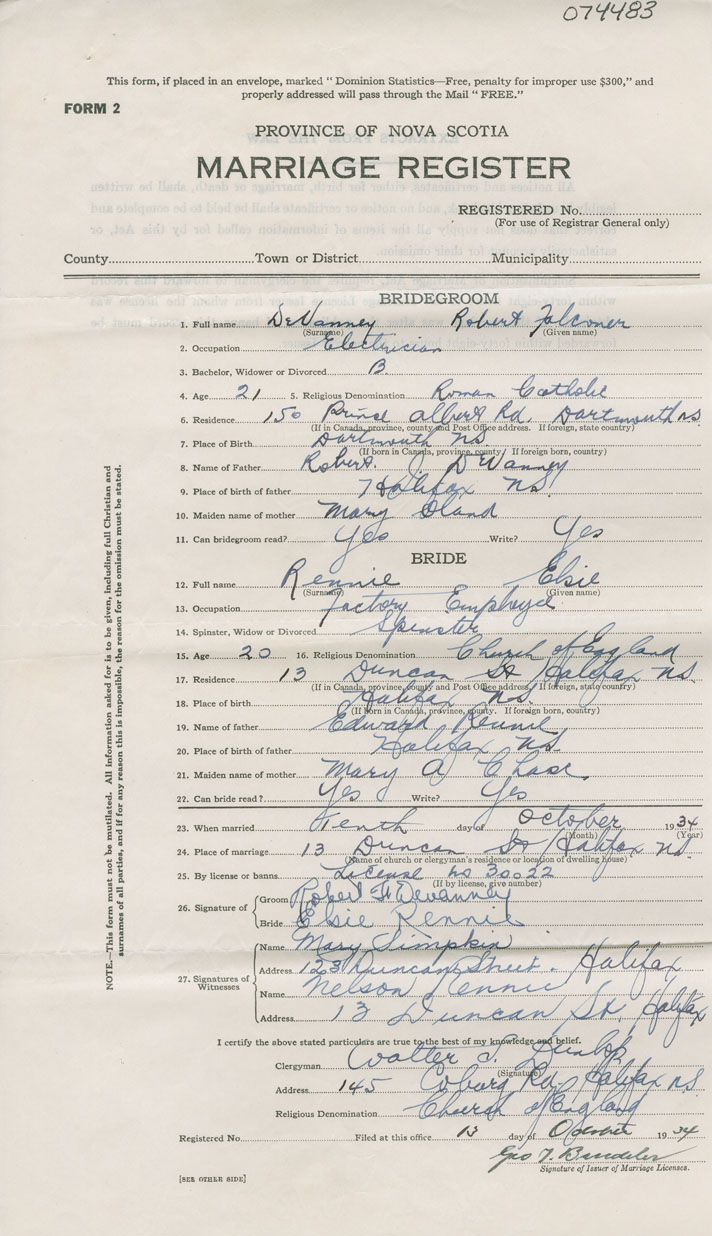 074483
This form, if placed in an envelope, marked "Dominion Statistics—Free, penalty for improper use $300," and
properly addressed will pass through the Mail "FREE."
FORM 2
PROVINCE OF NOVA SCOTIA
MARRIAGE REGISTER
REGISTERED No.
(For use of Registrar General only)
County Town or District Municipality
BRIDEGROOM
1. Full name DeVanney Robert Falconer
(Surname) (Given name)
2. Occupation Electrician
3. Bachelor, Widower or Divorced B
4. Age 21 5. Religious Denomination Roman Catholic
6. Residence 150 Prince Albert Rd. Dartmouth NS
(If in Canada, province, county and Post Office address. If foreign, state country)
7. Place of Birth Dartmouth NS
(If born in Canada, province, county. If foreign born, country)
8. Name of Father Robert. J. DeVanney
9. Place of birth of father Halifax NS.
10. Maiden name of mother Mary Oland
11. Can bridegroom read? Yes Write? Yes
BRIDE
12. Full name Rennie Elsie
(Surname) (Given name)
13. Occupation Factory Employed
14. Spinster, Widow or Divorced Spinster
15. Age 20 16. Religious Denomination Church of England
17. Residence 13 Duncan St Halifax NS.
(If in Canada, province, county and Post Office address. If foreign, state country)
18. Place of birth Halifax NS.
(If born in Canada, province, county. If foreign born, country)
19. Name of father Edward Rennie
20. Place of birth of father Halifax NS.
21. Maiden name of mother Mary A Chase
22. Can bride read? Yes Write? Yes
23. When married Tenth day of October 1934
(Month) (Year)
24. Place of marriage 13 Duncan St Halifax NS
(Name of church or clergyman's residence or location of dwelling house)
25. By license or banns. License no 30022
(If by license, give number)
26. Signature of
Groom Robert F Devanney
Bride Elsie Rennie
27. Signatures of Witnesses
Name Mary Simpkin
Address 123 Duncan Street. Halifax
Name Nelson Rennie
Address 13 Duncan St. Halifax
I certify the above stated particulars are true to the best of my knowledge and belief.
Clergyman Walter S. Dunlop
(Signature)
Address 145 Coburg Rd, Halifax NS
Religious Denomination Church of England
Registered No. Filed at this office 13 day of October 1934
Geo T.
Signature of Issuer of Marriage Licenses.
[SEE OTHER SIDE]
NOTE.—This form must not be mutilated. All information asked for is to be given, including full Christian and
surnames of all parties, and if for any reason this is impossible, the reason for the omission must be stated.